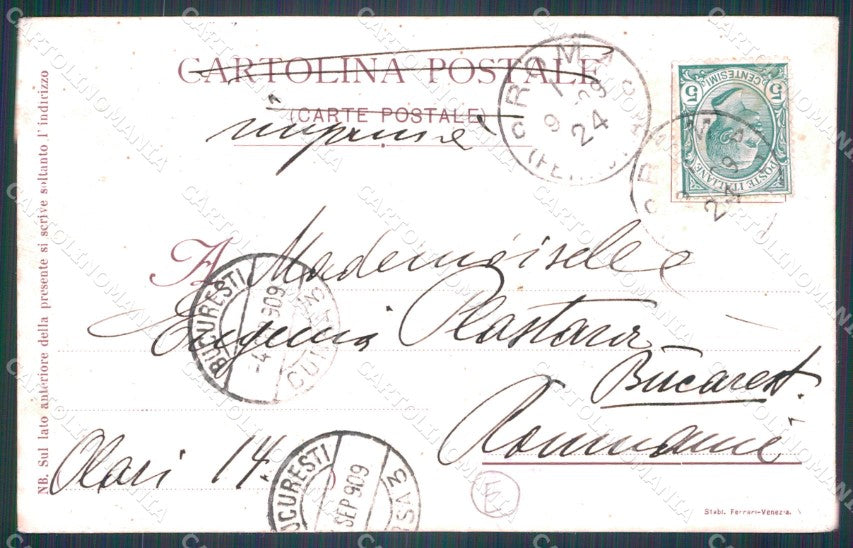 CARTOLINA POSTALE
(CARTE POSTALE)
imprimé
ROMA
24
5 CENTESIMI 5
POSTE ITALIANE
A Mademoiselle
Eugenia Plastara
Bucarest.
Roumanie
Olari 14.
BUCURESTI
BUCURESTI
SEP 909
NB. Sul lato anteriore della presente si scrive soltanto l'indirizzo
Stabi. Ferrari-Venezia.
CARTOLINOMANIA